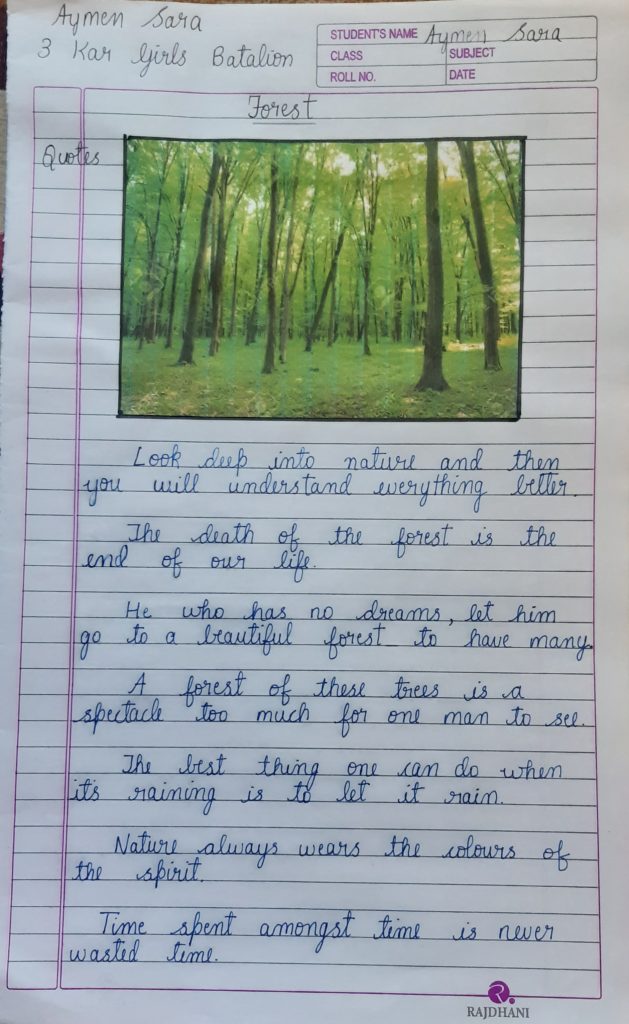 Aymen Sara
3 Kar Girls Batalion
STUDENT'S NAME Aymen Sara
CLASS SUBJECT
ROLL NO. DATE
Forest
Quotes
Look deep into nature and then
you will understand everything better.
The death of the forest is the
end of our life.
He who has no dreams, let him
go to a beautiful forest to have many.
A forest of these trees is a
spectacle too much for one man to see.
The best thing one can do when
it's raining is to let it rain.
Nature always wears the colours of
the spirit.
Time spent amongst time is never
wasted time.
RAJDHANI